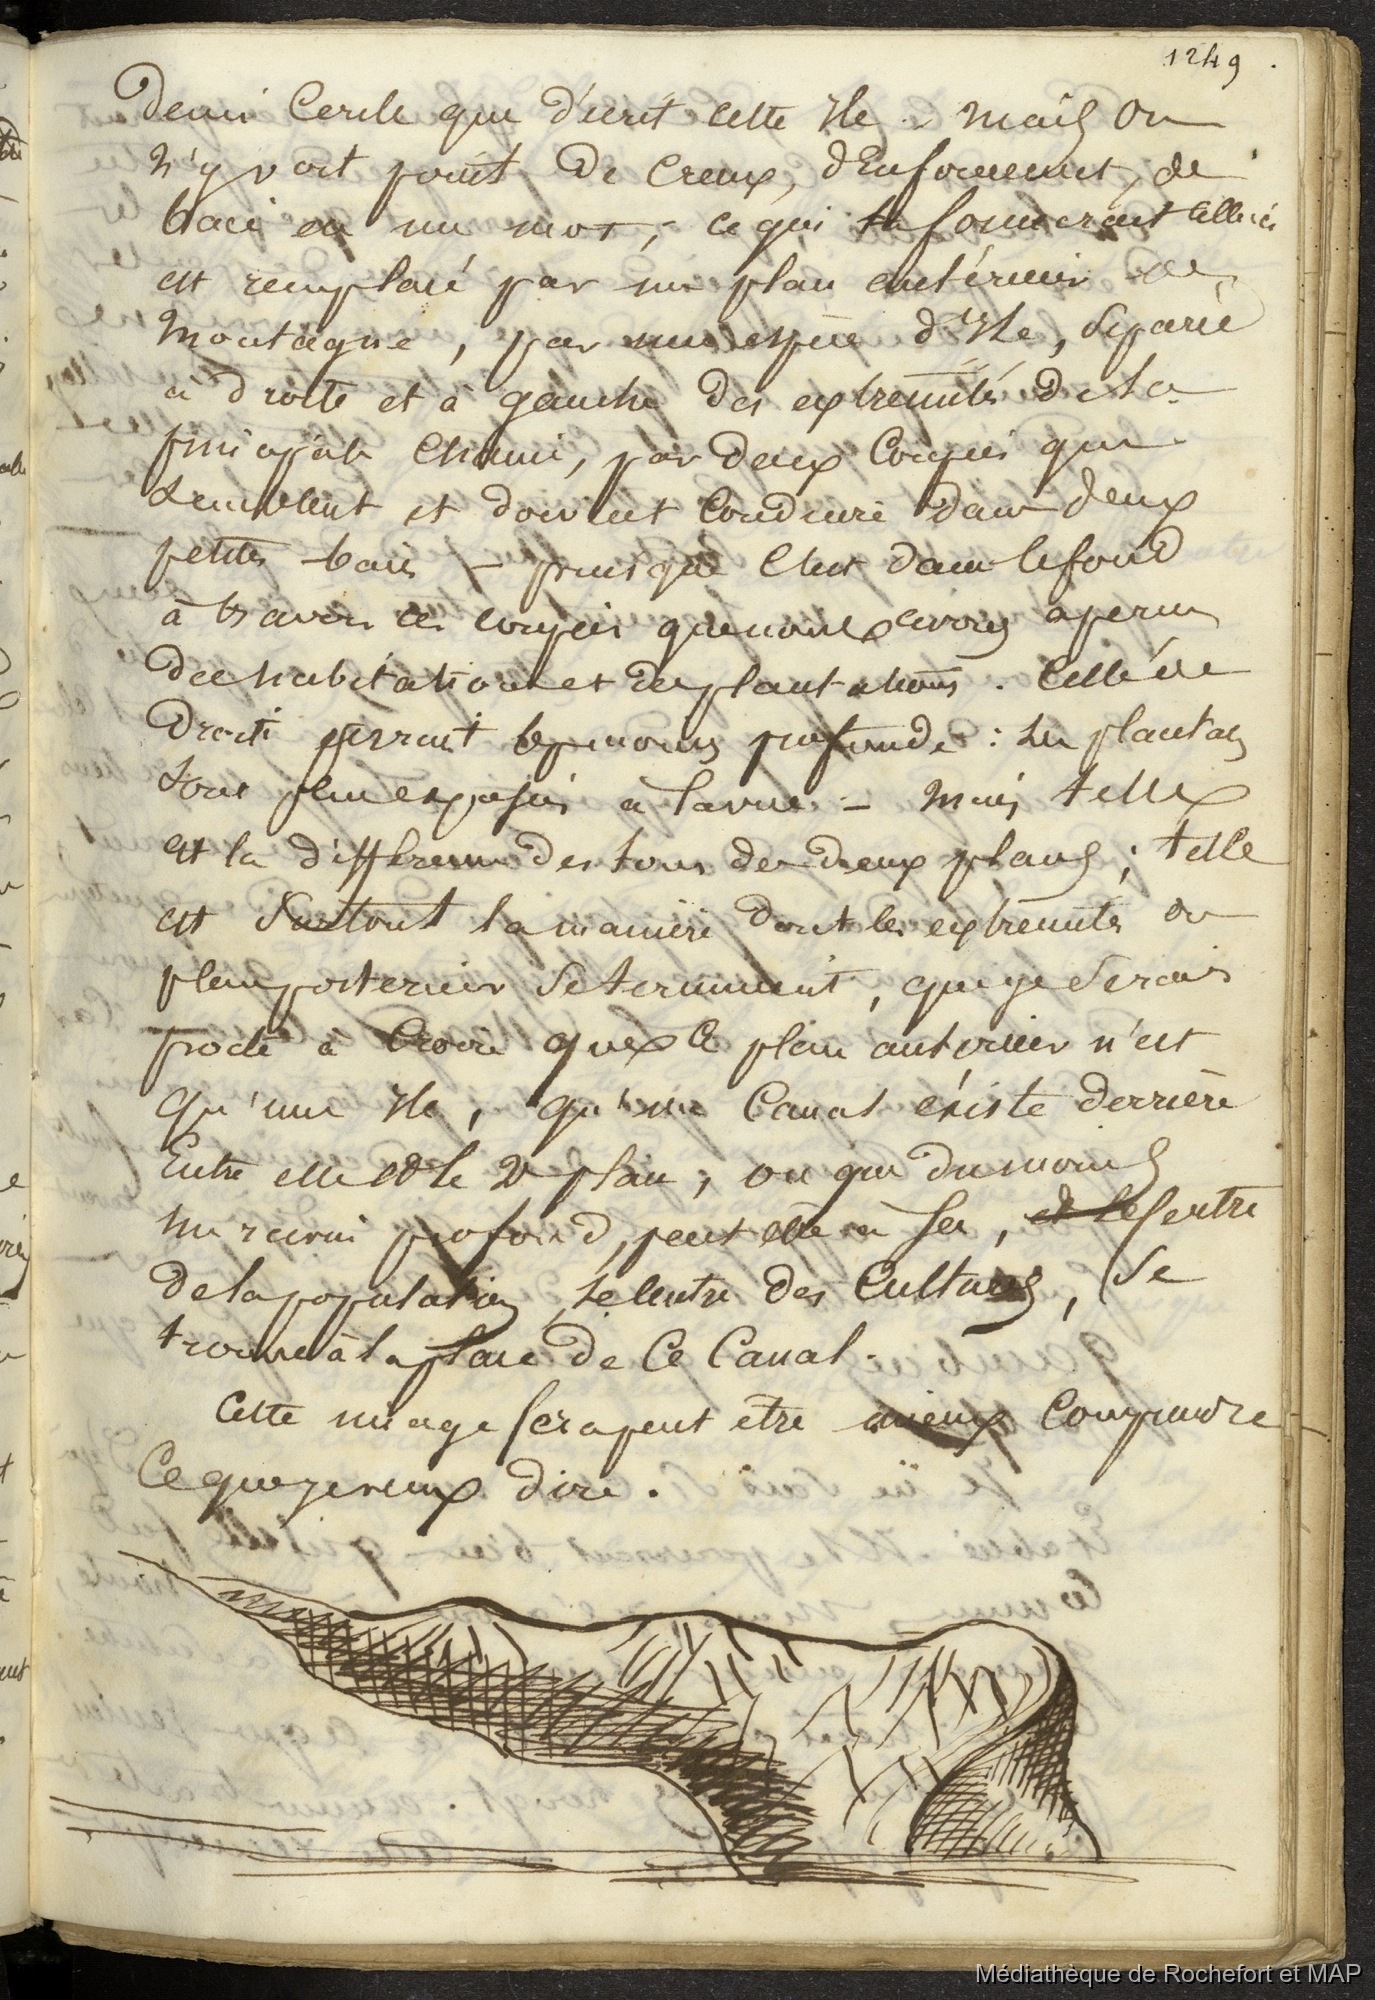 1249
Demi Cercle que décrit cette Ile. Mais on
n'y voit point de Creux, d'Enfoncement, de
baie en un mot; ce qui formerait celle-ci
est remplacé par un plan antérieur de
Montagne, par une espèce d'Ile, Séparée
à droite et à gauche des extrémités de la
principale Chaine, par deux Coupées qui
Semblent et doivent Conduire dans deux
petites baies – puisque C'est dans le fond
à travers ces coupées que nous avons aperçu
des habitations et des plantations. Celle de
Droite serait moins profonde : les plantas
sont plus exposées à la vue – Mais telle
est la différence des tons des deux plans ; telle
est Surtout la manière dont les extrémités du
plan postérieur se terminent, que je Serais
porté à Croire que ce plan antérieur n'est
qu'une Ile, qu'un Canal existe derrière
Entre elle et le 2e plan ; ou que du moins
un ravin profond, peut être à Sec, et le Centre
de la population, le Centre des Cultures, Se
trouve à la place de Ce Canal.
Cette image fera peut être mieux Comprendre
Ce que je veux dire.
Médiathèque de Rochefort et MAP